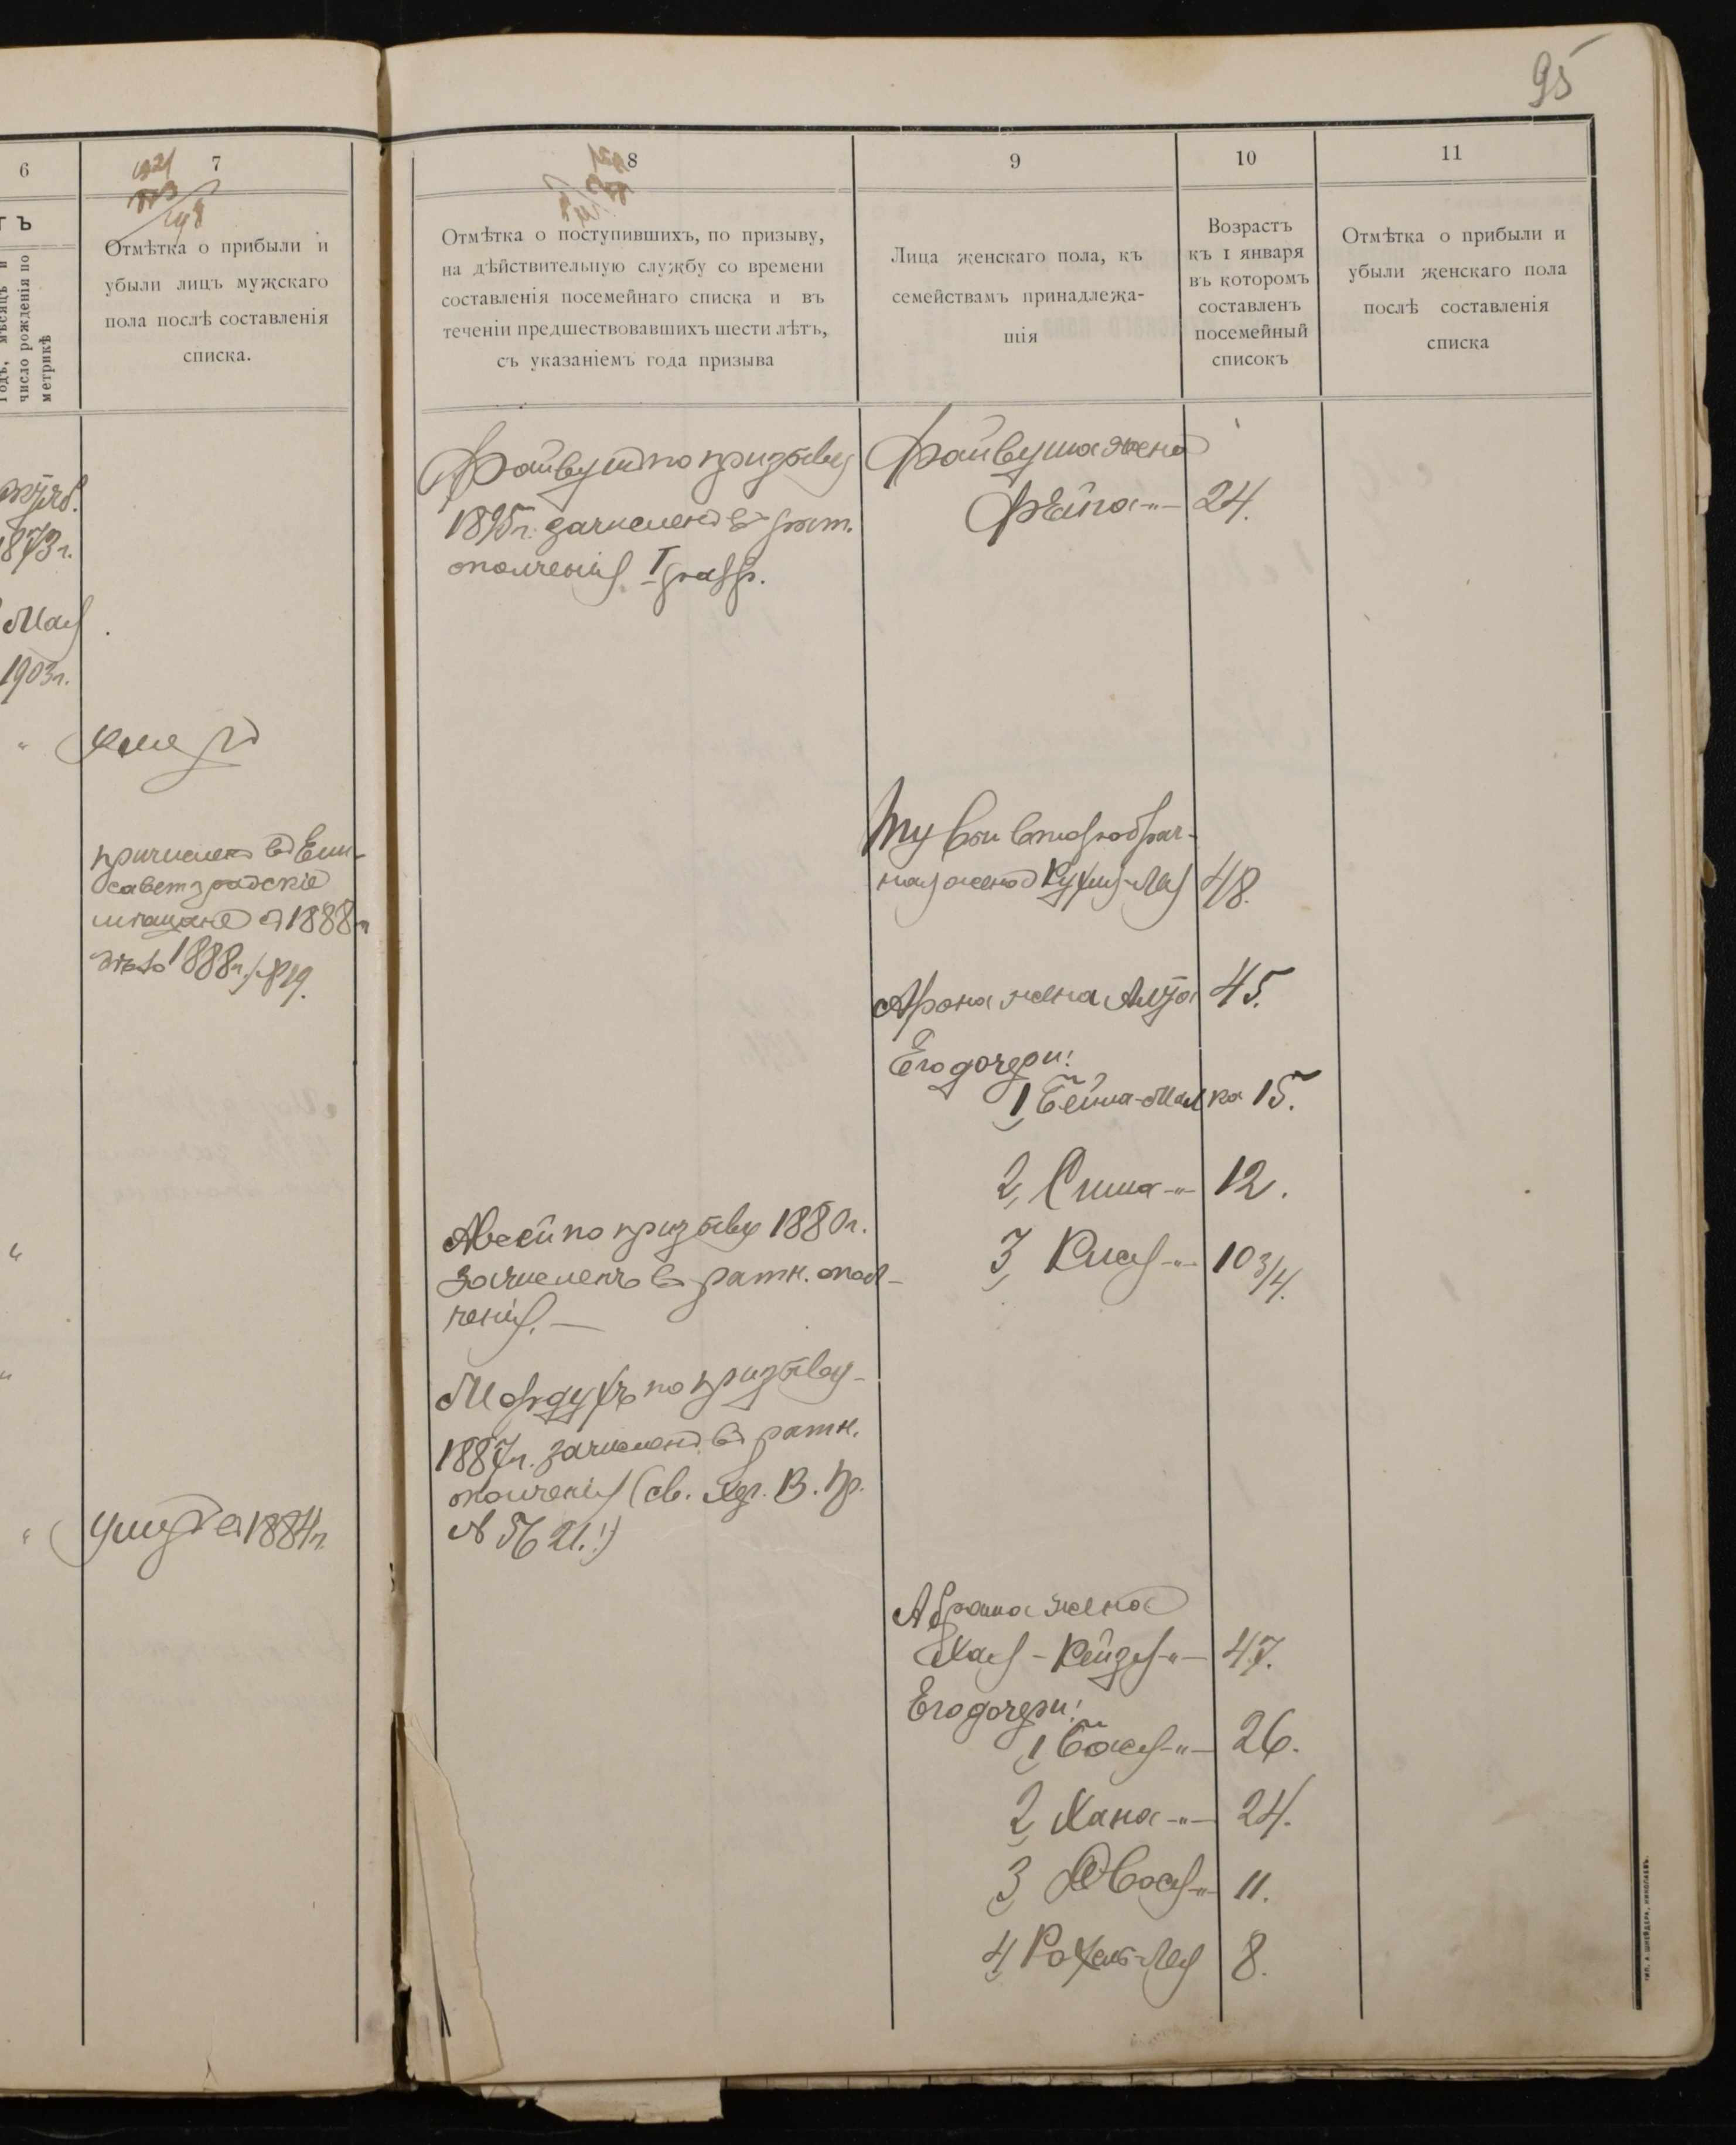 95
6
7
8
9
10
11
ТЪ
Годъ, мѣсяцъ и
число рожденія по
метрикѣ
Отмѣтка о прибыли и
убыли лицъ мужскаго
пола послѣ составленія
списка.
Отмѣтка о поступившихъ, по призыву,
на дѣйствительную службу со времени
составленія посемейнаго списка и въ
теченіи предшествовавшихъ шести лѣтъ,
съ указаніемъ года призыва
Лица женскаго пола, къ
семействамъ принадлежа-
щія
Возрастъ
къ 1 января
въ которомъ
составленъ
посемейный
списокъ
Отмѣтка о прибыли и
убыли женскаго пола
послѣ составленія
списка
1873 г.
Мая
1903 г.
умеръ
причисленъ въ Ели-
саветградскіе
мѣщане съ 1888 г.
дѣло 1888 г. № 19.
умеръ въ 1884 г.
Файвушъ по призыву
1895 г. зачисленъ въ рат.
ополченія I разр.
Авсей по призыву 1880 г.
зачисленъ въ ратн. опол-
ченія. —
Мордухъ по призыву
1887 г. зачисленъ въ ратн.
ополченія (св. Хер. В. Пр.
№ 5621.)
Файвуша жена
Фейга -"- 24.
второбрач-
ная жена Рухля-Лея 48.
Арона жена 45.
Его дочери:
1, Бейла-Малка 15.
2, Сима -"- 12.
3, Кися -"- 10 3/4.
Абрама жена
Хая-Рейзя -"- 47.
Его дочери:
1, Бася -"- 26.
2, Хана -"- 24.
3, Двося -"- 11.
4, Рохель-Лея 8.